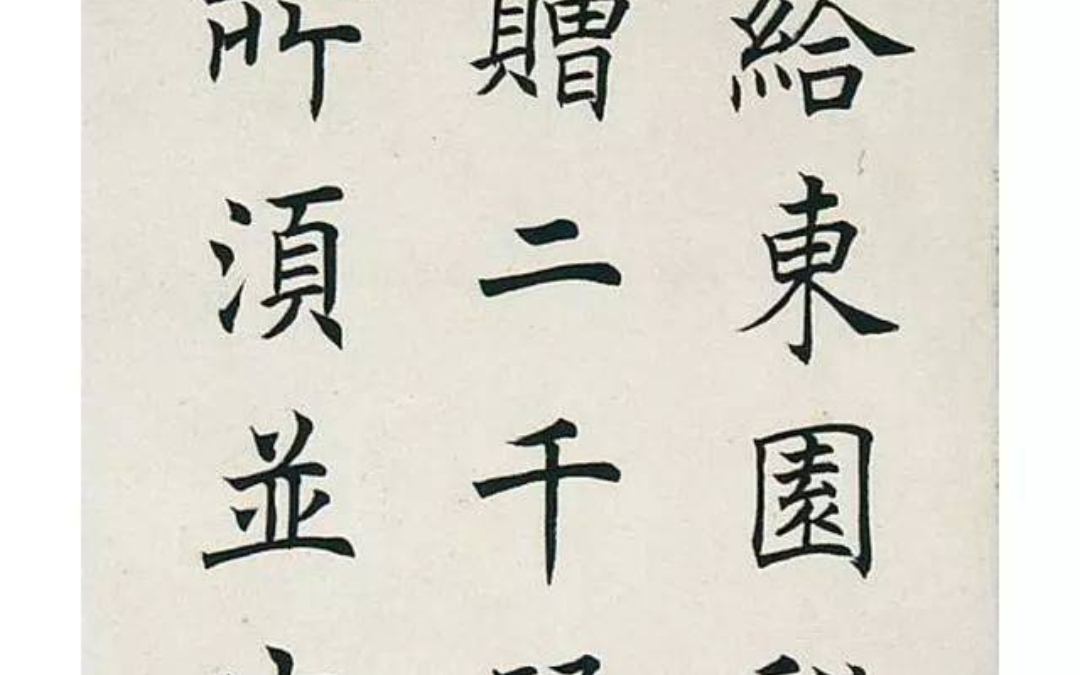 給東園
贈二千
所湏並